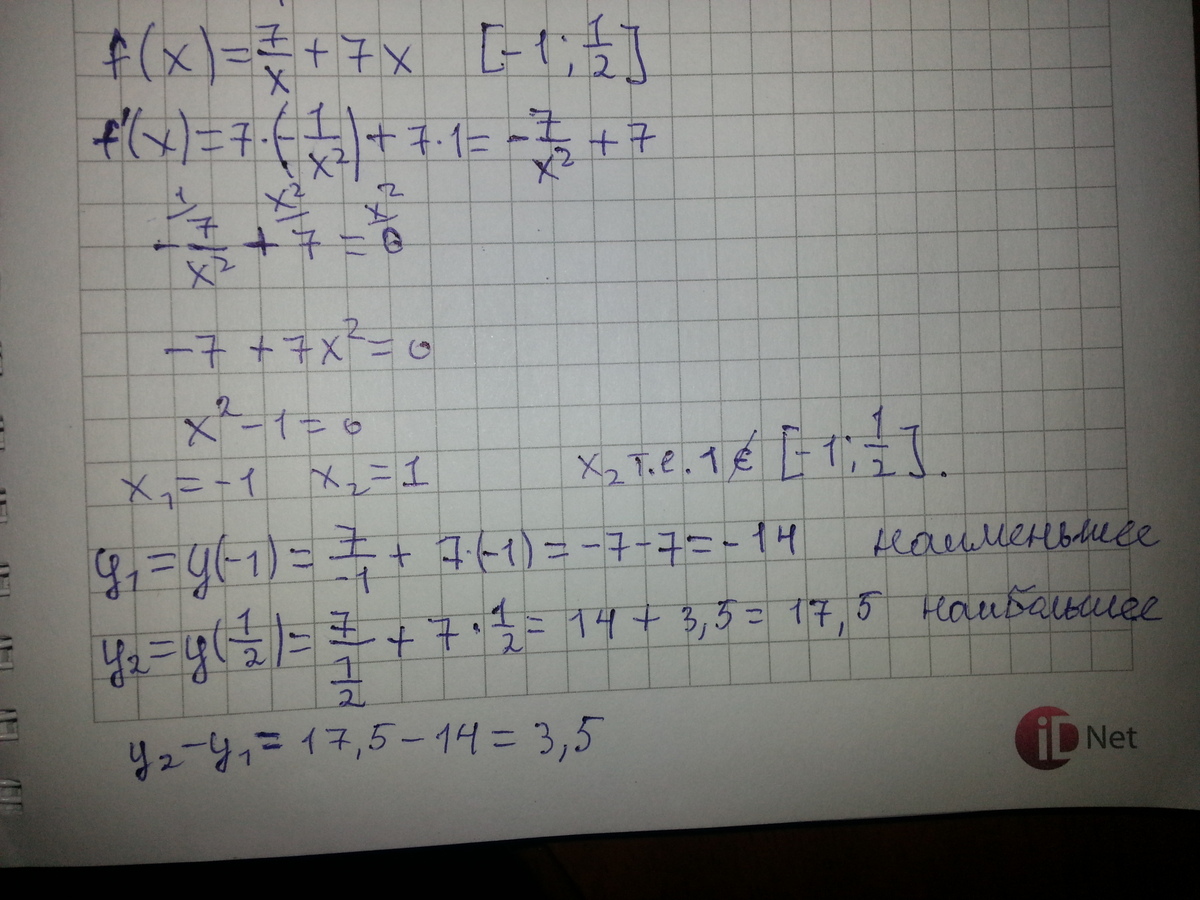 f(x) = 7/x + 7x [-1; 1/2]
f'(x) = 7·(-1/x²) + 7·1 = -7/x² + 7
-7/x² + 7 = 0 1/ x²/ x²/
-7 + 7x² = 0
x² - 1 = 0
x₁ = -1 x₂ = 1 x₂ т.е. 1 ∉ [-1; 1/2].
y₁ = y(-1) = 7/-1 + 7·(-1) = -7-7 = -14 наименьшее
y₂ = y(1/2) = 7/(1/2) + 7·1/2 = 14 + 3,5 = 17,5 наибольшее
y₂ - y₁ = 17,5 - 14 = 3,5
iD Net